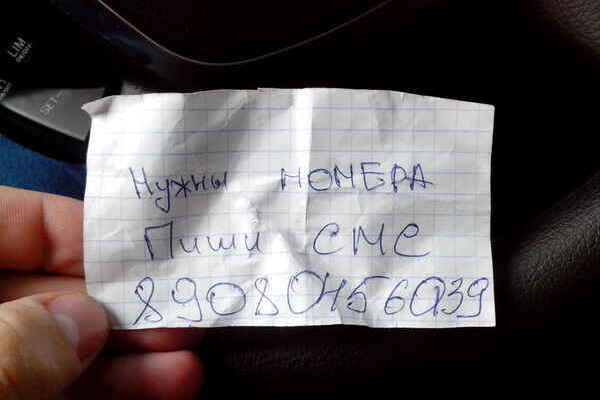 LIM
SET-
Нужны НОМЕРА
Пиши СМС
89080456039